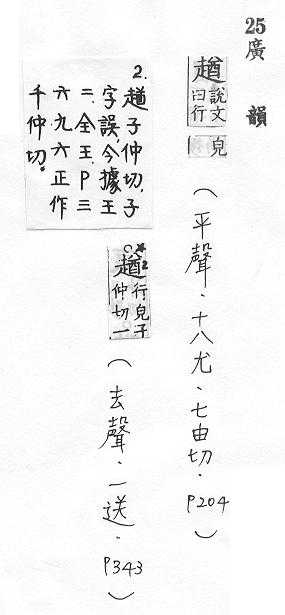 25廣韻
趥說文曰行皃（平聲．十八尤．七由切．P204）
趥行皃子仲切一（去聲．一送．P343）
2.趥子仲切，子
字誤，今據王
二、全王、P三
六九六正作
千仲切。